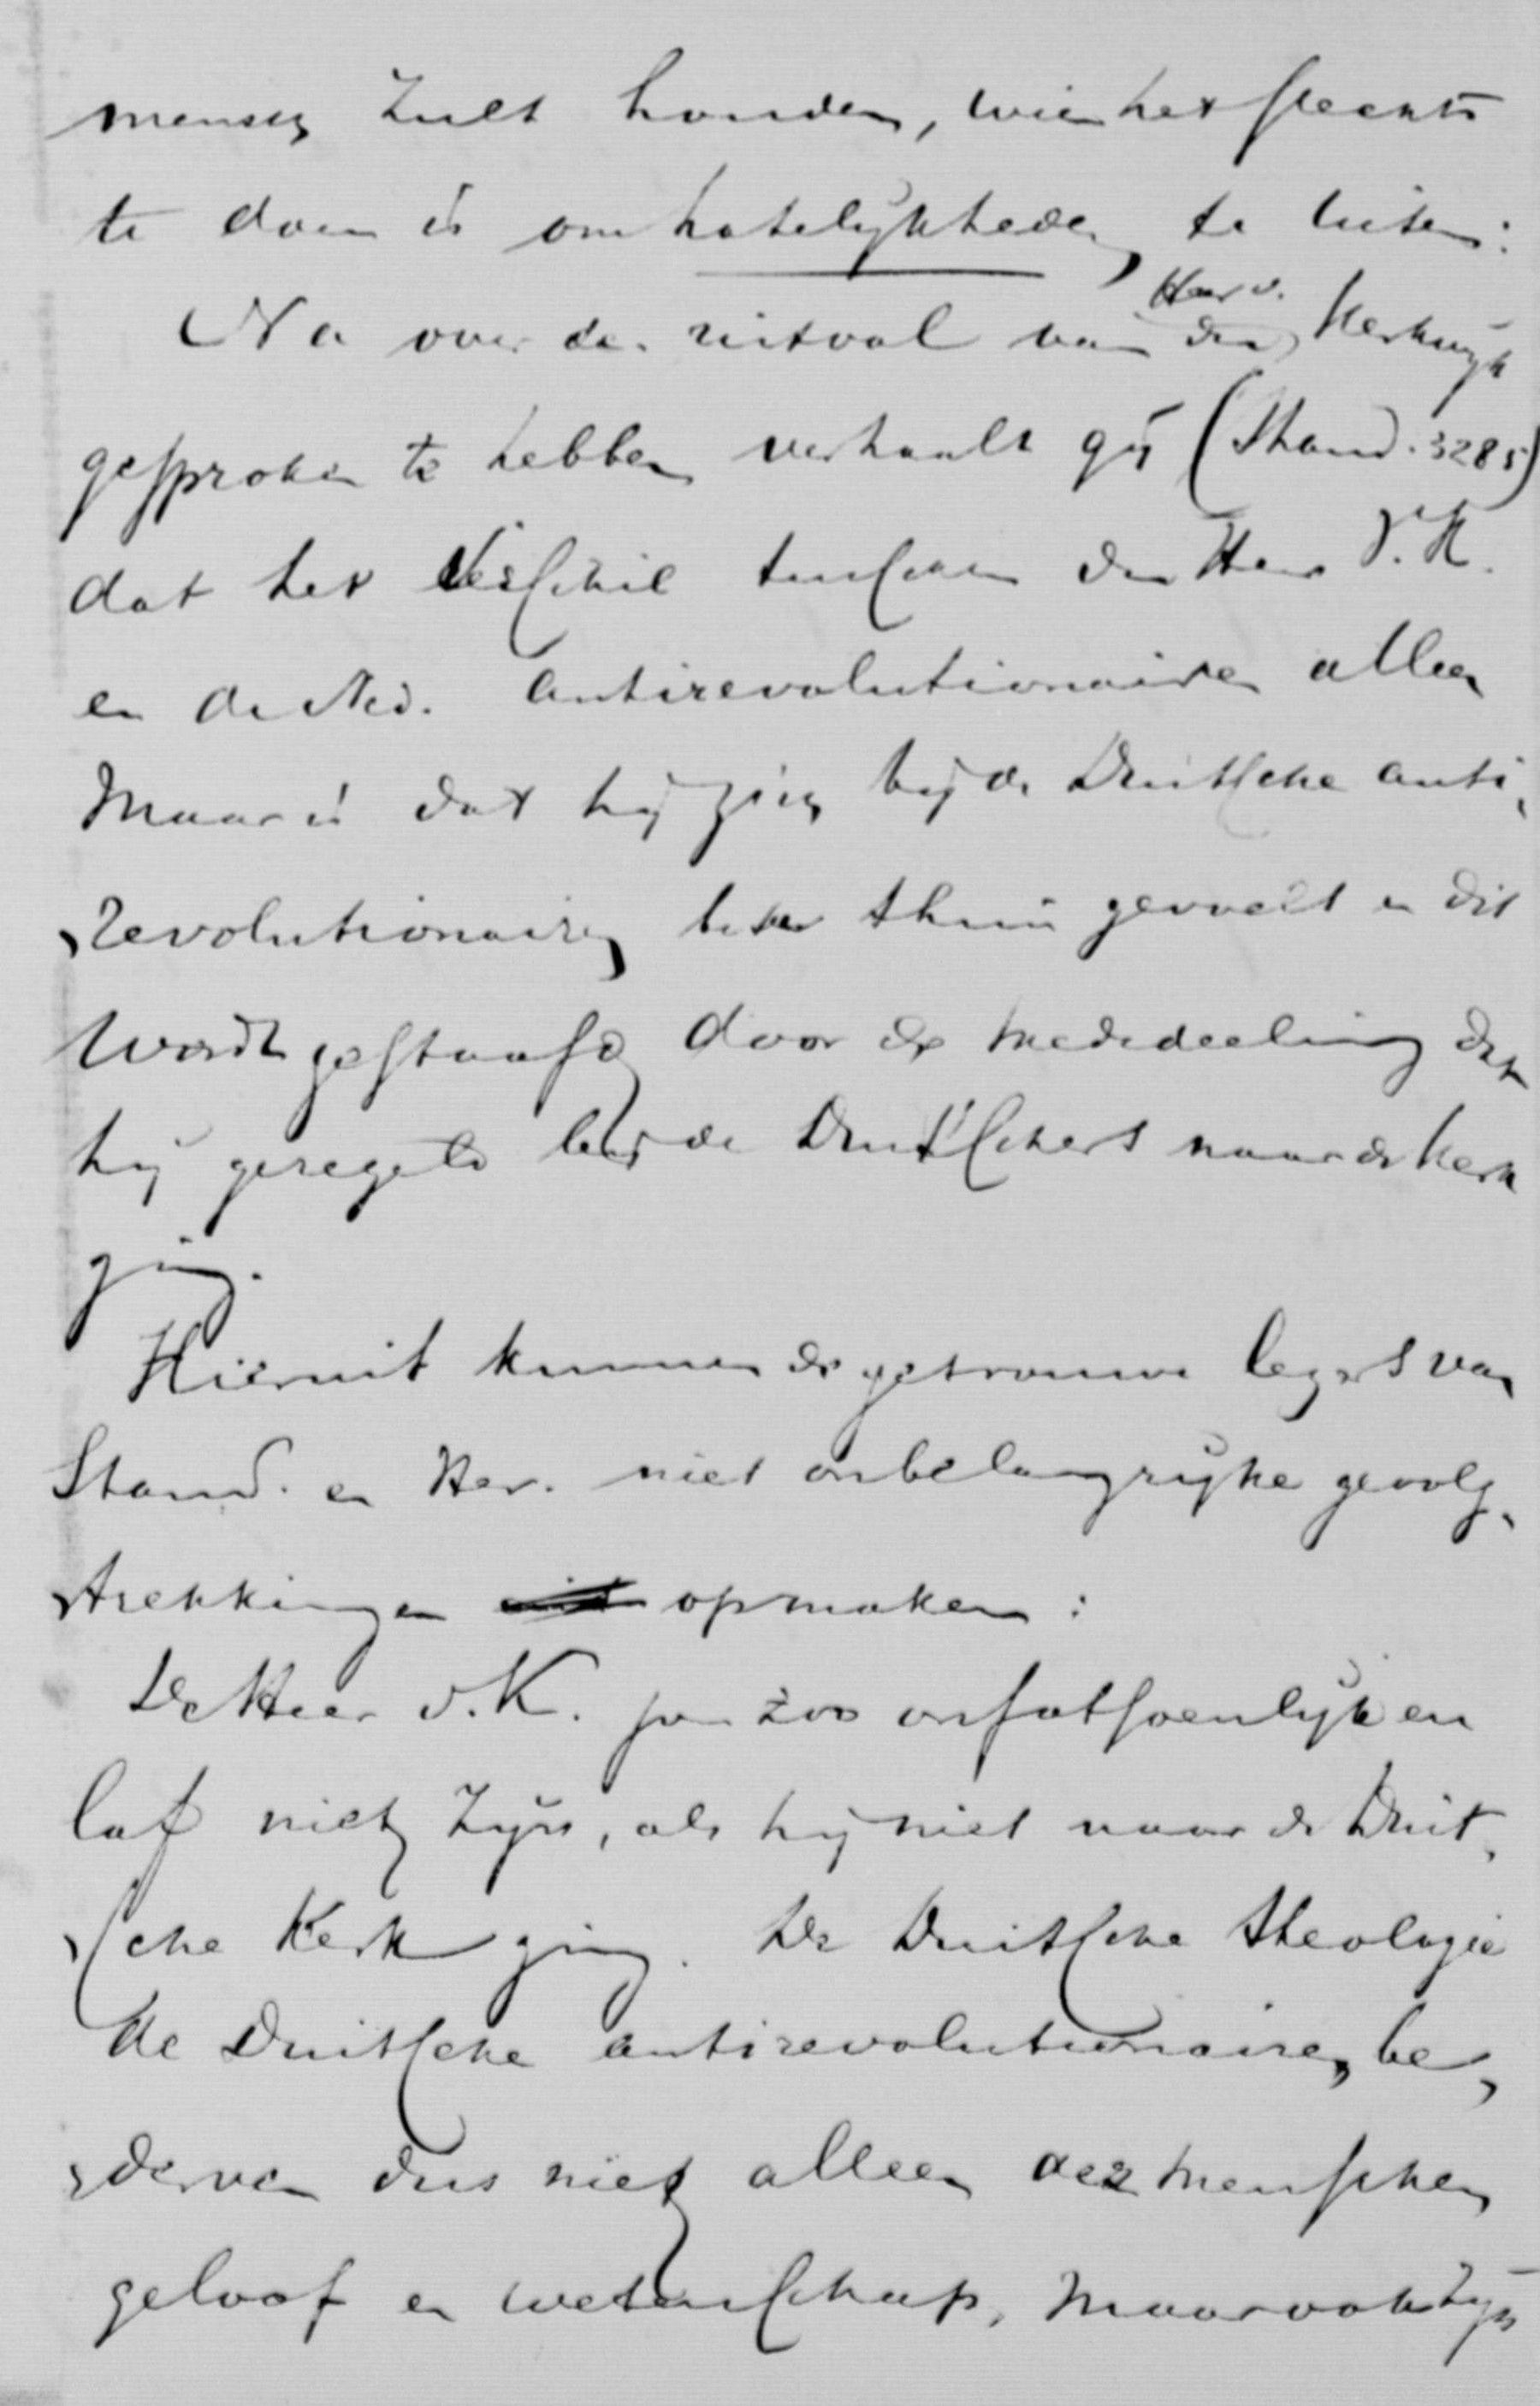 mensch zult houden, wien het slechts
te doen is om hatelijkheden te uiten:
Na over den uitval van den Heer v. Kerkwijk
gesproken te hebben verhaalt gij (Stand. 3285)
dat het verschil tusschen den Heer V. K.
en de Ned. antirevolutionairen alleen
maar is dat hij zich bij de Duitsche anti„
„revolutionairen beter thuis gevoelt en dit
wordt gestaafd door de mededeeling dat
hij geregeld bij de Duitschers naar de kerk
ging.
Hieruit kunnen de getrouwe lezers van
Stand. en Her. niet onbelangrijke gevolg„
„trekkingen opmaken:
De Heer v. K. zou zoo onfatsoenlijk en
laf niet zijn, als hij niet naar de Duit„
„sche Kerk ging. De Duitsche theologie
de Duitsche antirevolutionairen be„
„derven dus niet alleen des menschen
geloof en wetenschap, maar ook zijn